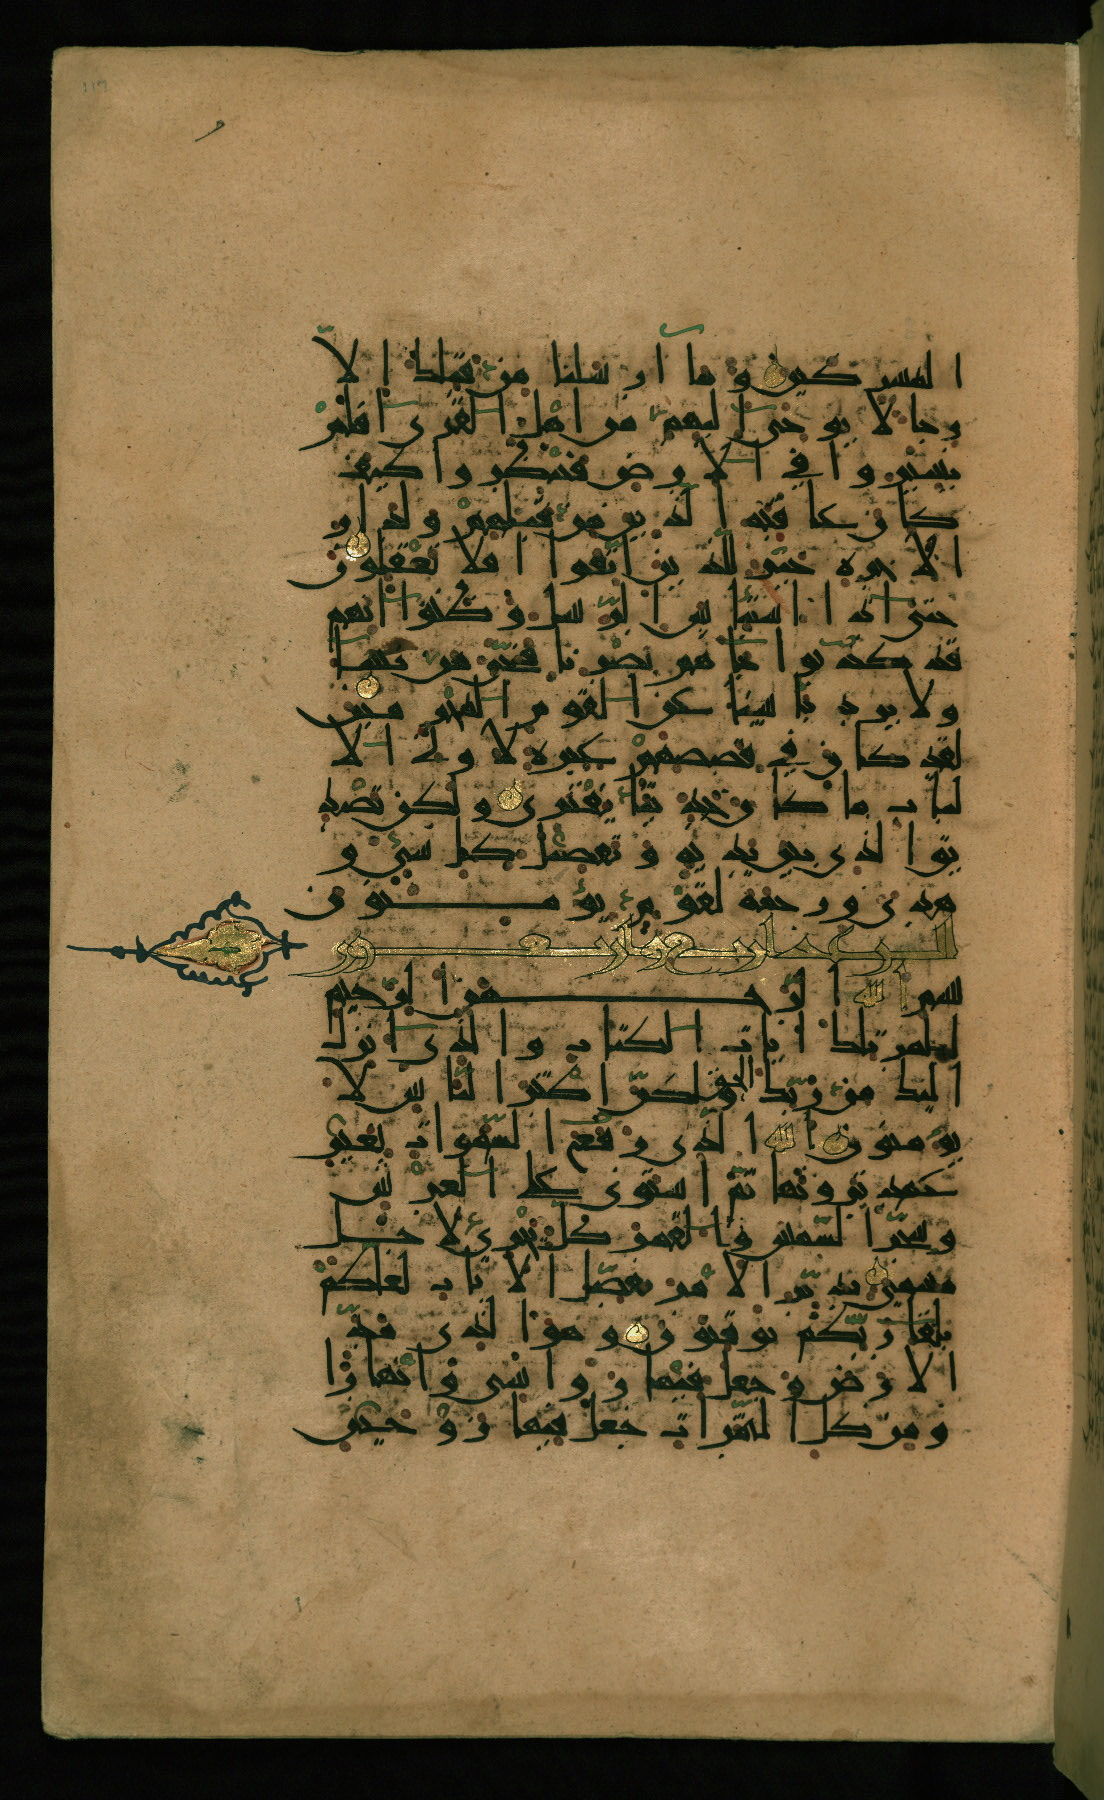 المشركين وما ارسلنا من قبلك الا
رجالا يوحى اليهم من اهل القرى افلم
يسيروا في الارض فينظروا كيف
كان عاقبة الذين من قبلهم ولدار
الاخرة خير للذين اتقوا افلا تعقلون
حتى اذا استيئس الرسل وظنوا انهم
قد كذبوا جاهم نصرنا فنجي من نشا
ولا يرد باسنا عن القوم المجرمين
لقد كان في قصصهم عبرة لاولي الا
لباب ما كان حديثا يفترى ولكن تصد
يق الذي بين يديه وتفصيل كل شيء و
هدى ورحمة لقوم يؤمنون
الرعد اربع واربعون
بسم الله الرحمن الرحيم
المر تلك ايات الكتاب والذي انزل
اليك من ربك الحق ولكن اكثر الناس لا
يؤمنون الله الذي رفع السموات بغير
عمد ترونها ثم استوى على العرش
وسخر الشمس والقمر كل يجري لاجل
مسمى يدبر الامر يفصل الايات لعلكم
بلقا ربكم توقنون وهو الذي مد
الارض وجعل فيها رواسي وانهارا
ومن كل الثمرات جعل فيها زوجين